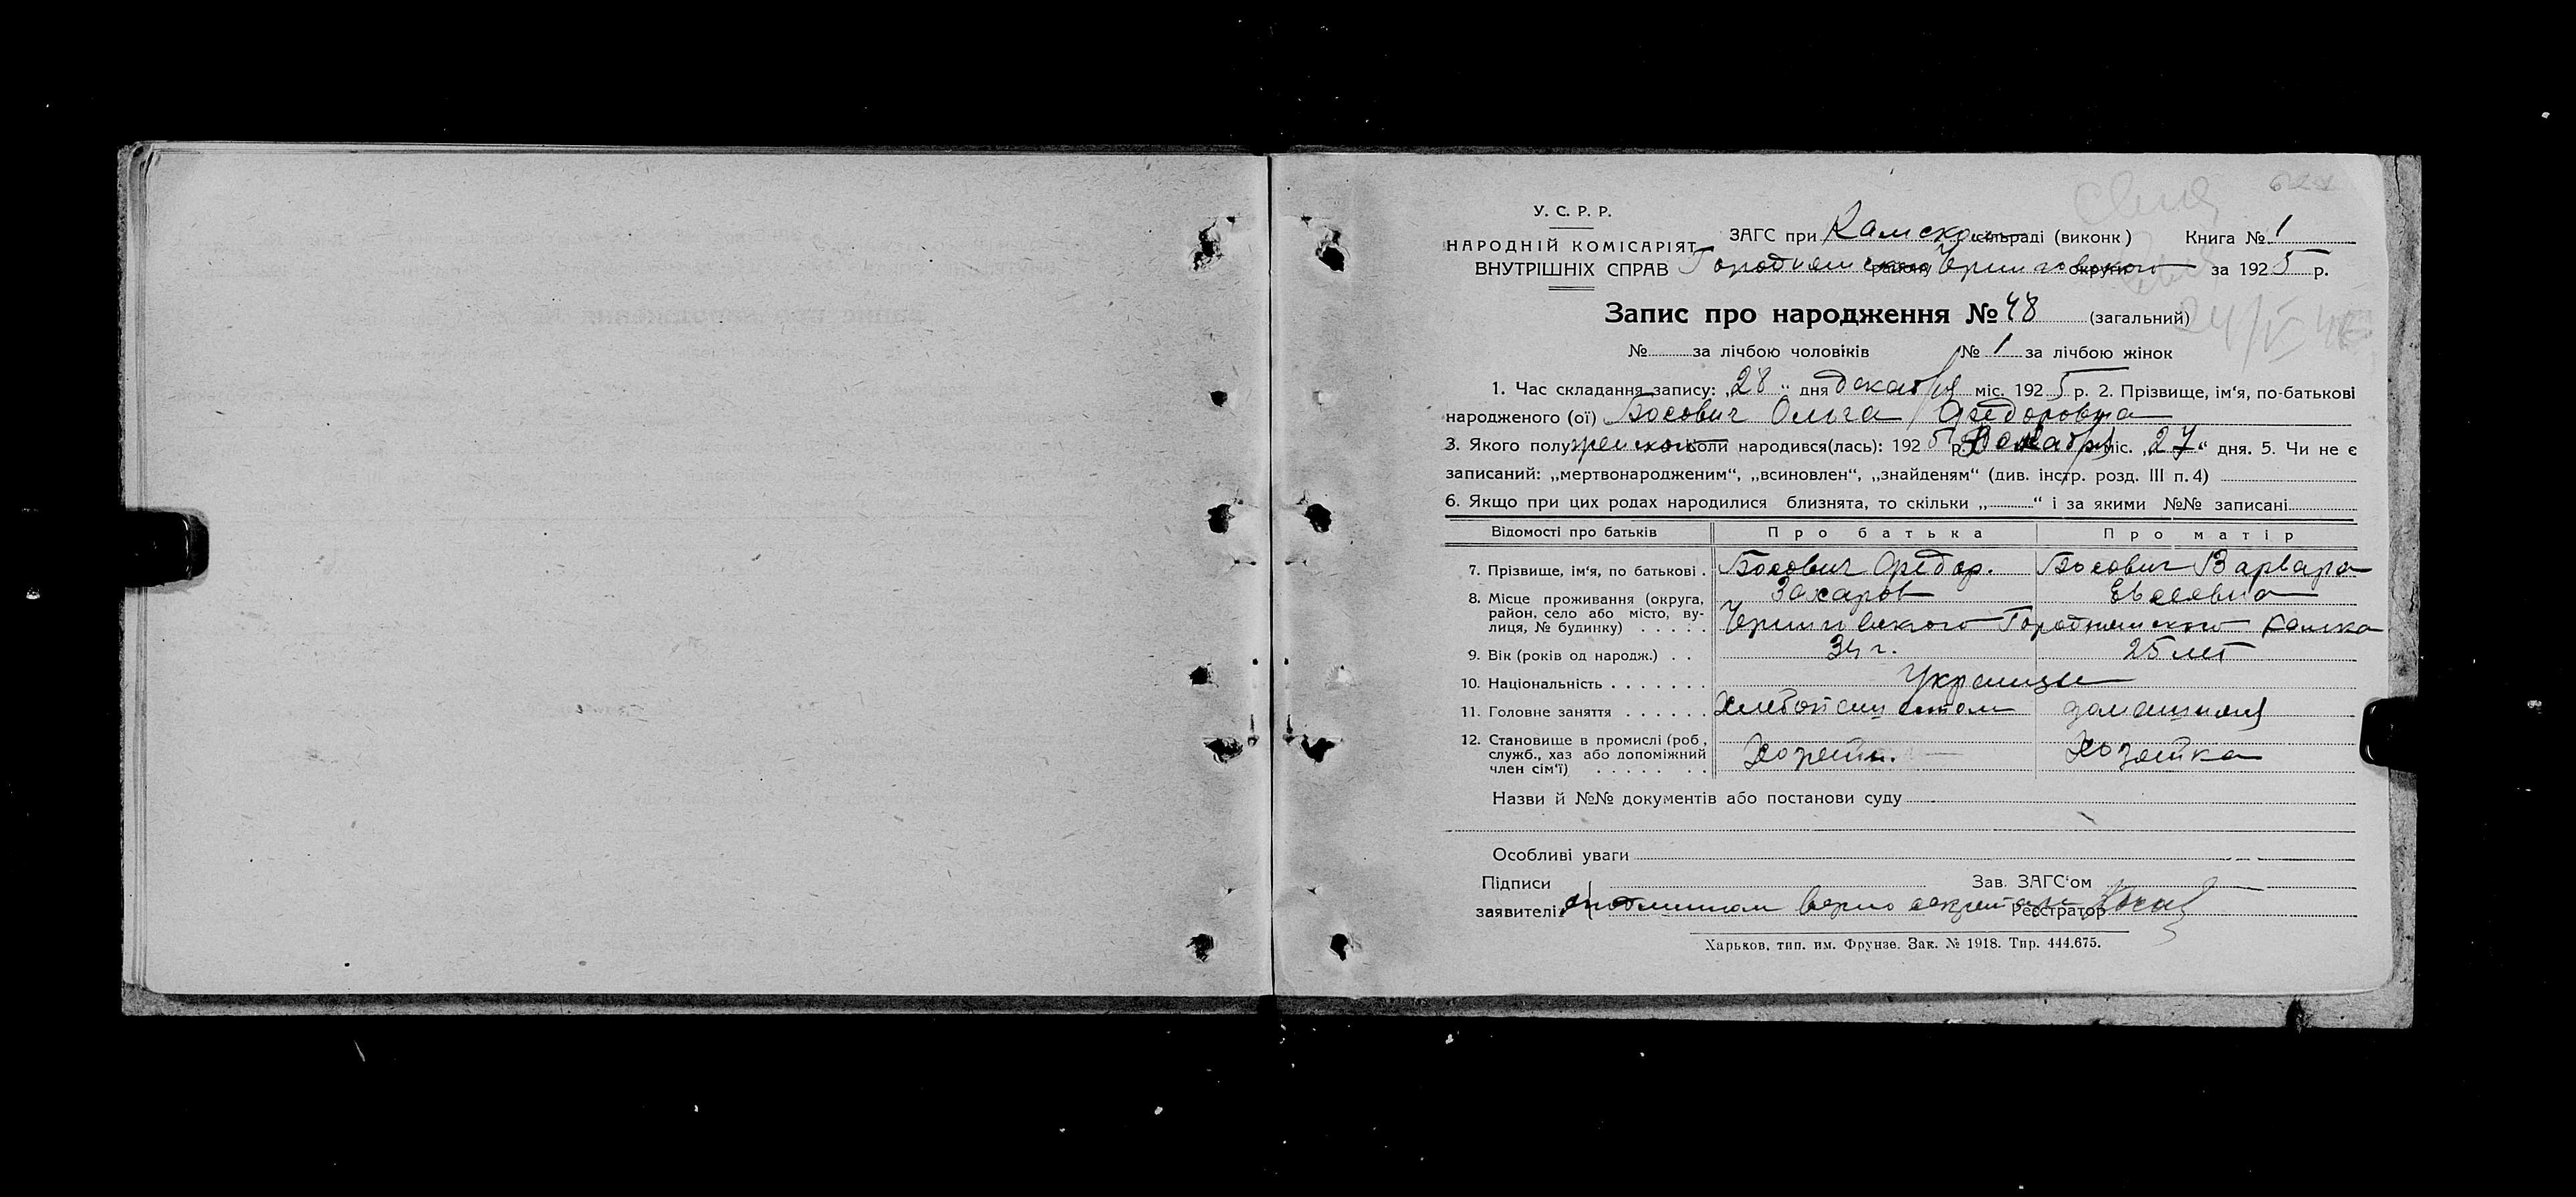 У. С. Р. Р.
НАРОДНІЙ КОМІСАРІЯТ
ВНУТРІШНІХ СПРАВ
ЗАГС при Камском сільраді (виконк) Книга № 1
Городнянского району Черниговского округи за 1925 р.
Запис про народження № 48 (загальний)
№ за лічбою чоловіків № 1 за лічбою жінок
1. Час складання запису: „28“ дня декабря міс. 1925 р. 2. Прізвище, ім‘я, по-батькові
народженого (ої) Босович Ольга Федоровна
3. Якого полу женского коли народився(лась): 1925 р. Декабря міс. „27“ дня. 5. Чи не є
записаний: „мертвонародженим“, „всиновлен“, „знайденям“ (див. інстр. розд. III п. 4)
6. Якщо при цих родах народилися близнята, то скільки „ “ і за якими №№ записані
Відомості про батьків Про батька Про матір
7. Прізвище, ім‘я, по батькові . Босович Федор. Босович Варвара
Захаров Евсеевна
8. Місце проживання (округа,
район, село або місто, ву-
лиця, № будинку) . . . . . Черниговского Городнянского Камка
9. Вік (років од народж.) . . 34 г. 25 лет
10. Національність . . . . . . . Украинцы
11. Головне заняття . . . . . . Хлебопашеством домашняя
12. Становище в промислі (роб.,
служб., хаз або допоміжний
член сім‘ї) . . . . . . . . Хозяин. Хозяйка
Назви й №№ документів або постанови суду
Особливі уваги
Підписи Зав. ЗАГС‘ом
заявителів верно секретарь Реєстратор
Харьков, тип. им. Фрунзе. Зак. № 1918. Тир. 444.675.